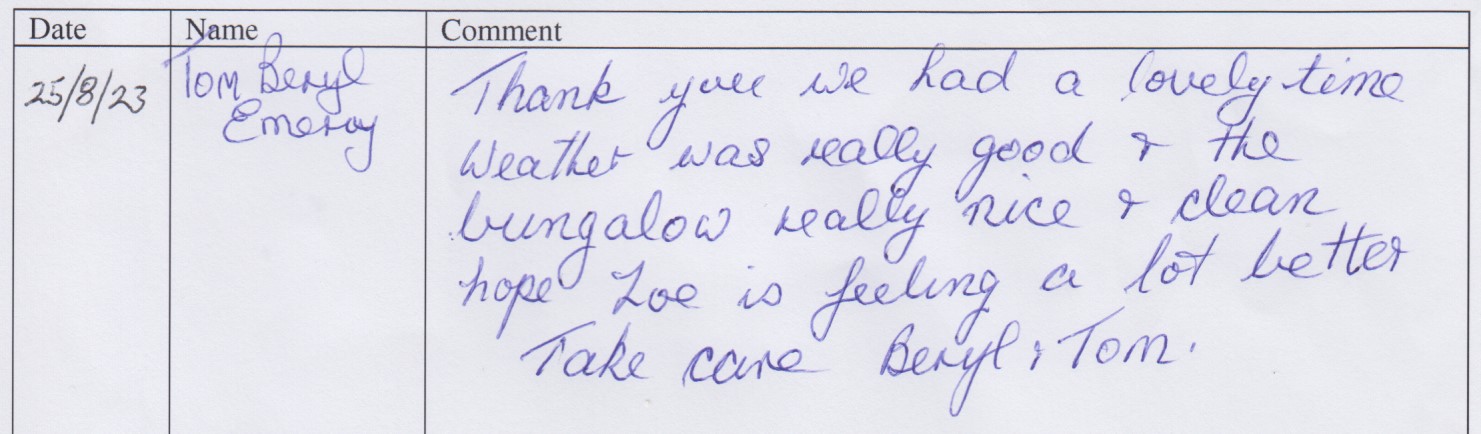 Date Name Comment
25/8/23 Tom Beryl
Emeroy
Thank you we had a lovely time
Weather was really good & the
bungalow really nice & clean
hope Zoe is feeling a lot better
Take care Beryl & Tom.